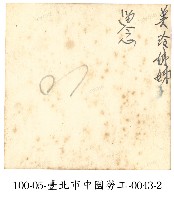 美玲姊姊
留念
100-05-臺北市中國勞工-0043-2